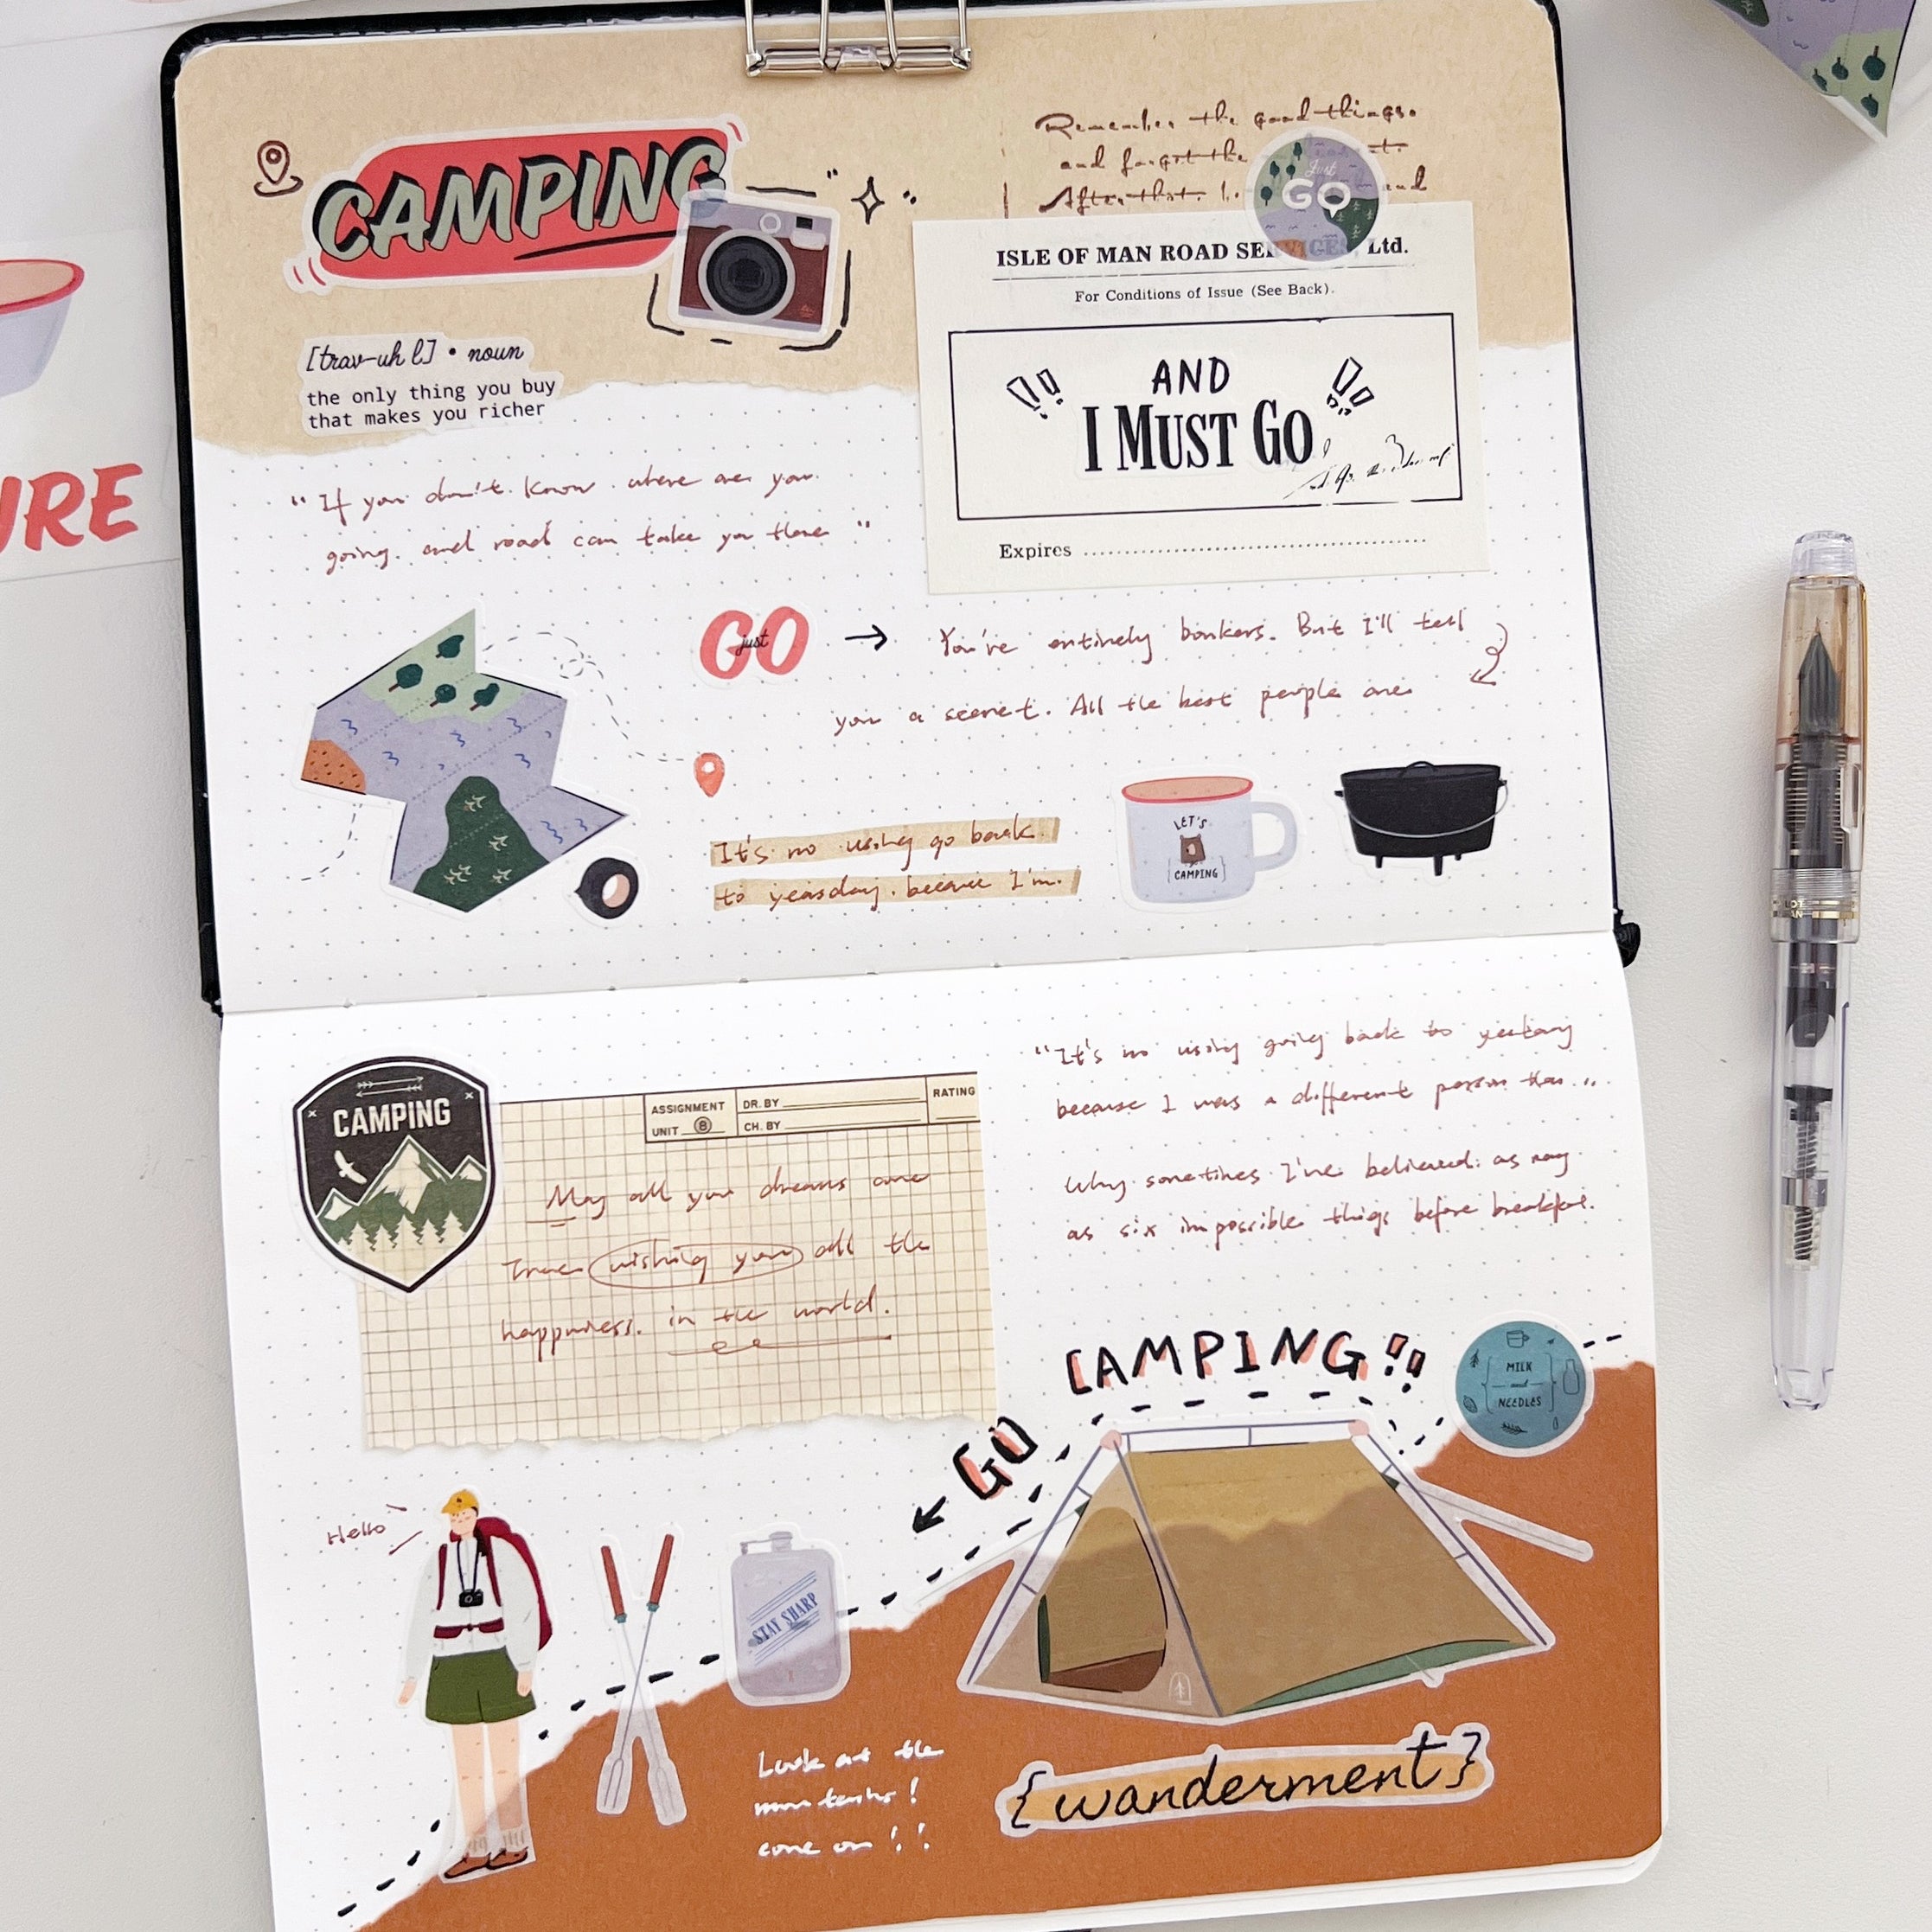 CAMPING
[trav-uh l] • noun
the only thing you buy
that makes you richer
Remember the good things.
and forgot the
After that. and
Just
GO
ISLE OF MAN ROAD SERVICES Ltd.
For Conditions of Issue (See Back).
AND
I MUST GO
Expires
URE
" If you don't know where are you
going. and road can take you there "
GO
just
→ You're entirely bonkers. But I'll tell
you a secret. All the best people are
It's no using go back
to yeasday. because I'm.
LET'S
CAMPING
CAMPING
ASSIGNMENT
UNIT 8
DR. BY
CH. BY
RATING
May all your dreams come
True wishing you all the
happiness. in the world.
"It's no using going back to
because I was a different person then..
Why sometimes I've believed. as
as six impossible things before
CAMPING!!
GO
MILK
and
NEEDLES
Hello
STAY SHARP
Look at the
come on!!
{wanderment}